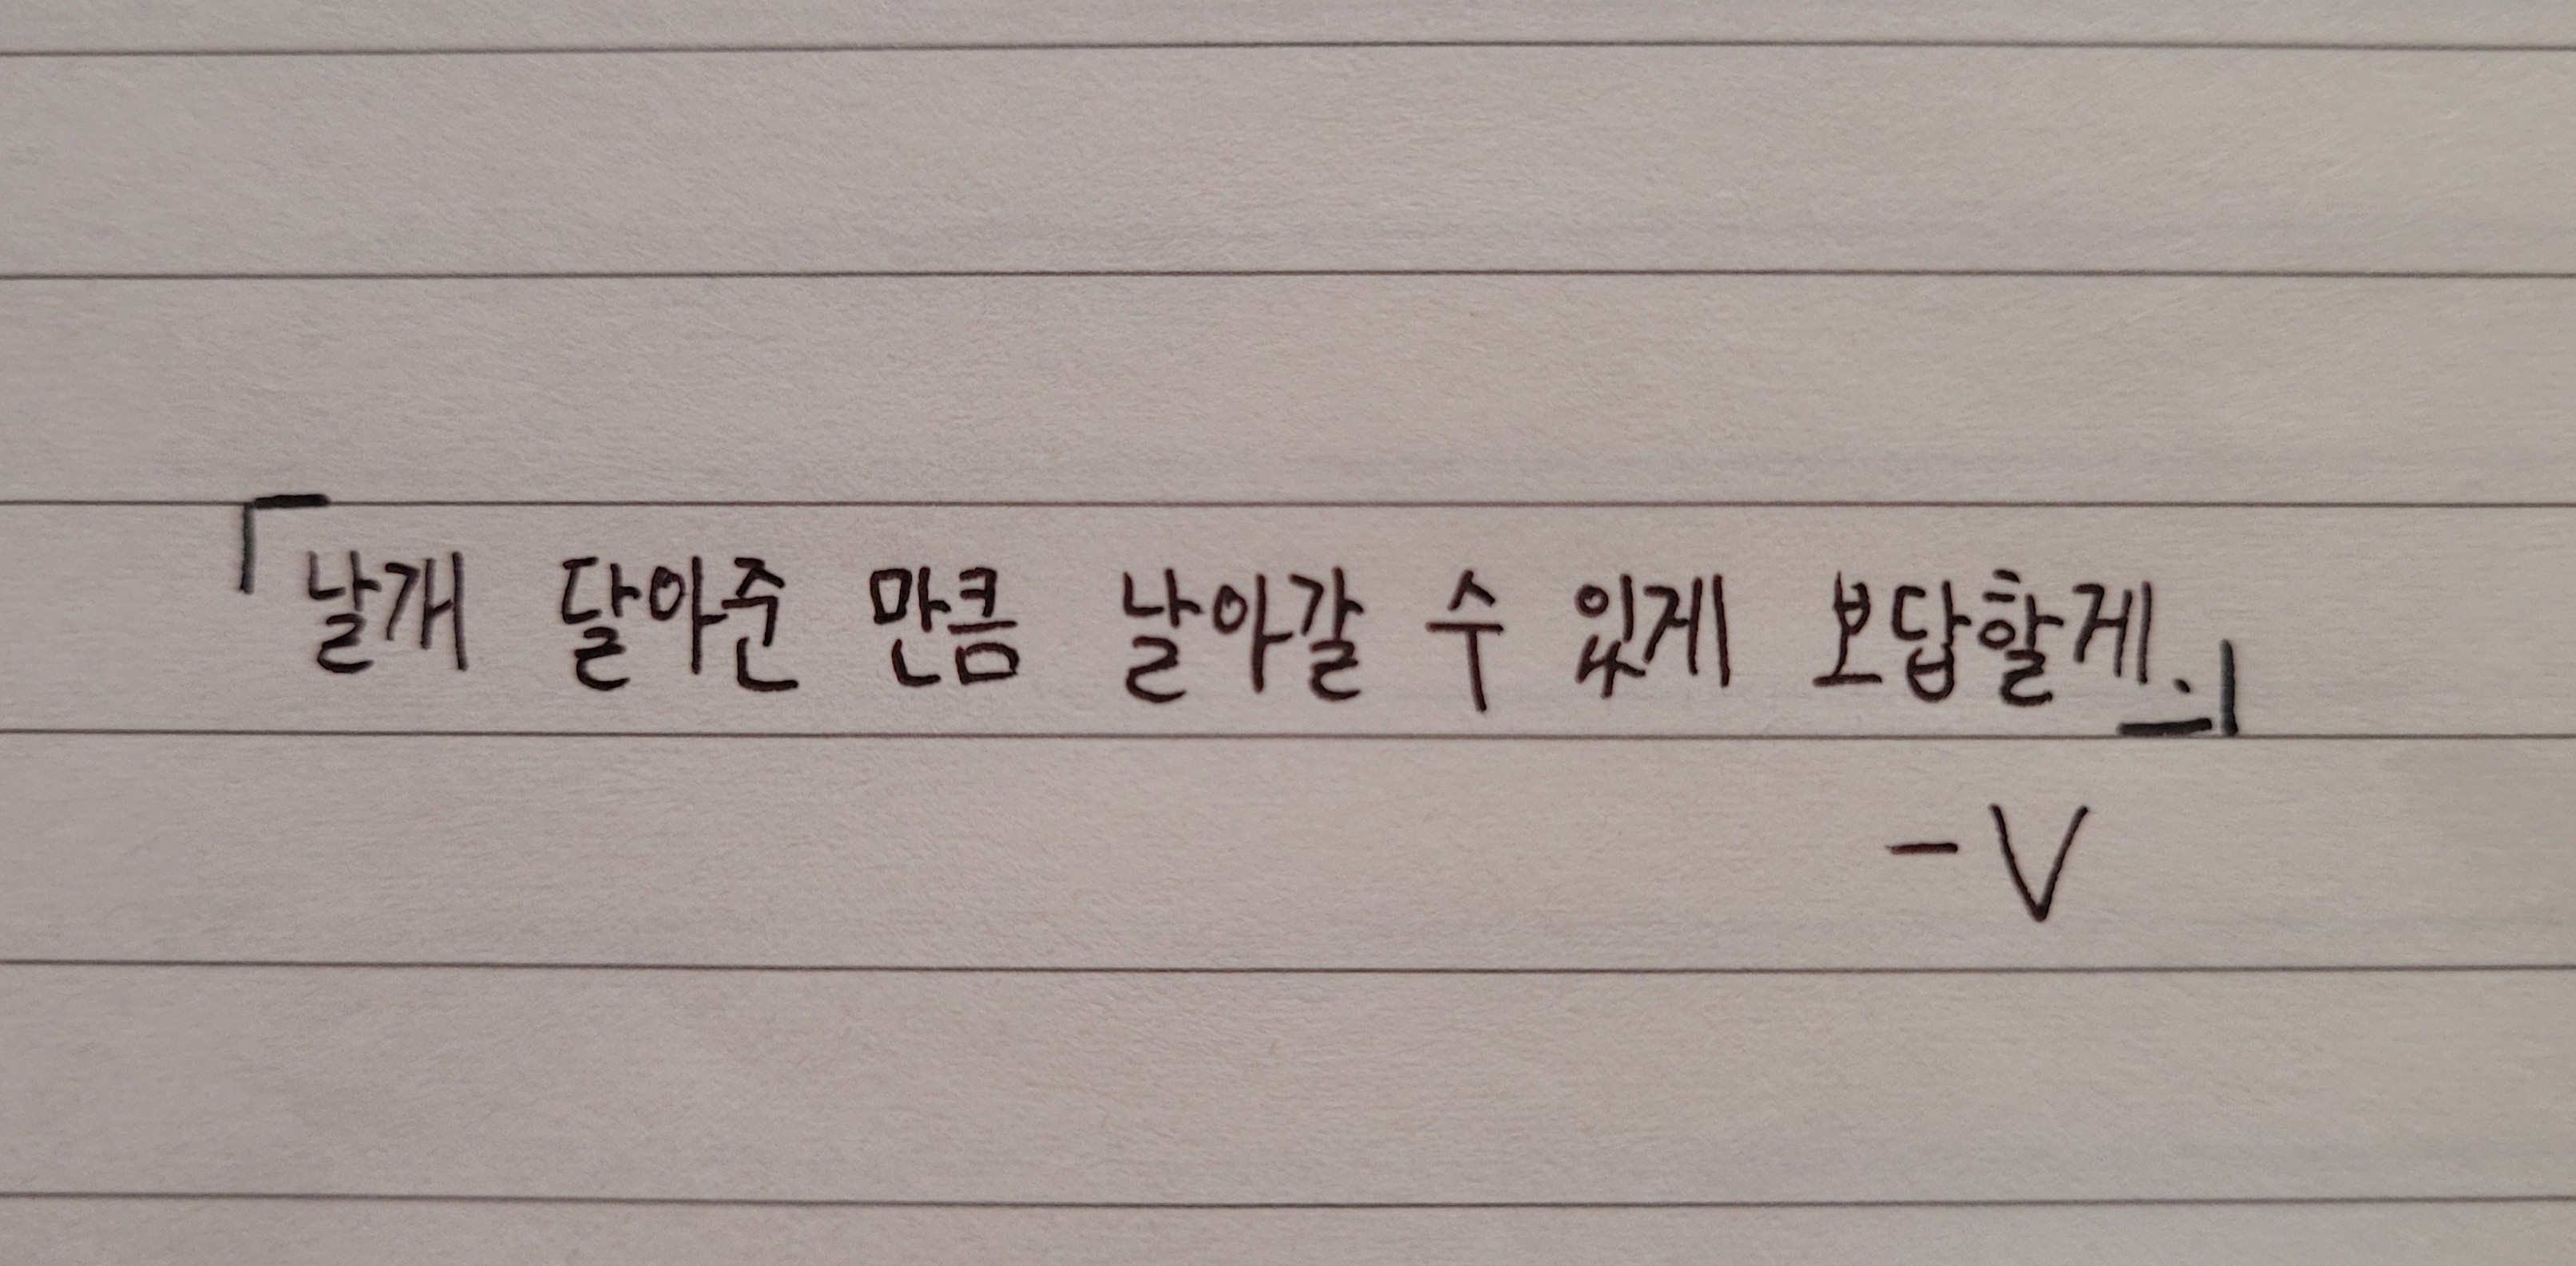 「날개 달아준 만큼 날아갈 수 있게 보답할게.」
-V